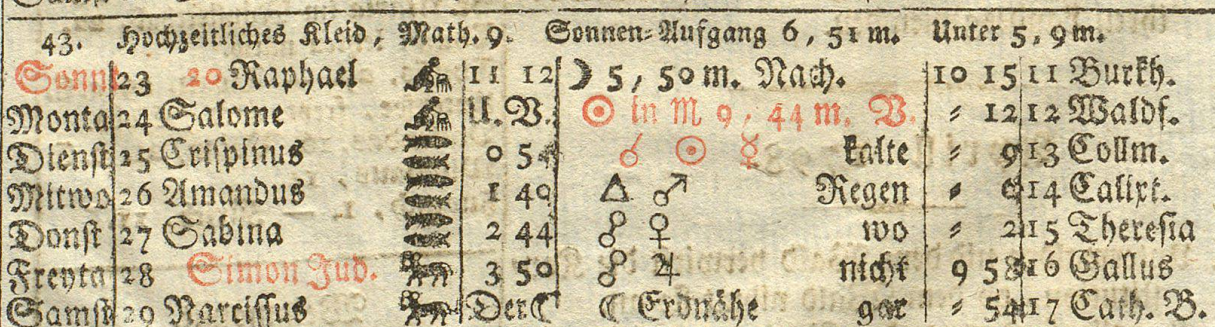 43. Hochzeitliches Kleid, Math. 9. Sonnen-Aufgang 6, 51 m. Unter 5, 9 m.
Sonnt 23 20 Raphael 11 12 ☽ 5, 50 m. Nach. 10 15 11 Burkh.
Monta 24 Salome U. V. ☉ in ♏ 9, 44 m. V. = 12 12 Waldf.
Dienst 25 Crispinus 0 54 ☌ ☉ ☿ kalte = 9 13 Collm.
Mitwo 26 Amandus 1 40 △ ♂ Regen = 14 Calixt.
Donst 27 Sabina 2 44 ☍ ♀ wo = 2 15 Theresia
Freyta 28 Simon Jud. 3 50 ☍ ♃ nicht 9 58 16 Gallus
Samst 29 Narcissus Der ☾ ☾ Erdnähe gar = 54 17 Cath. B.